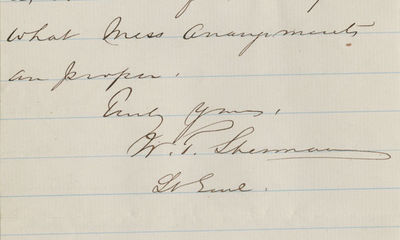 what mess arrangements
are proper.
Truly Yours,
W. T. Sherman
Lt Genl.